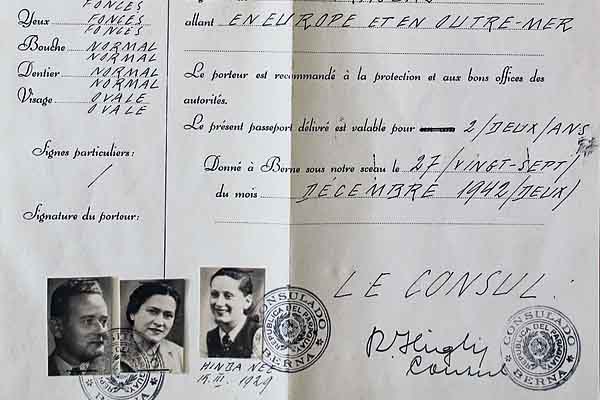 FONCÉS
Yeux FONCÉS
FONCÉS
Bouche NORMAL
NORMAL
Dentier NORMAL
NORMAL
Visage OVALE
OVALE
Signes particuliers:
/
Signature du porteur:
allant EN EUROPE ET EN OUTRE-MER
Le porteur est recommandé à la protection et aux bons offices des
autorités.
Le présent passeport délivré est valable pour 2/DEUX/ANS
Donné à Berne sous notre sceau le 27/VINGT-SEPT/
du mois DÉCEMBRE 1942/DEUX/
LE CONSUL:
Consul
HINDA NÉE
15.III. 1929
CONSULADO
REPUBLICA DEL PARAGUAY
BERNA
CONSULADO
REPUBLICA DEL PARAGUAY
BERNA